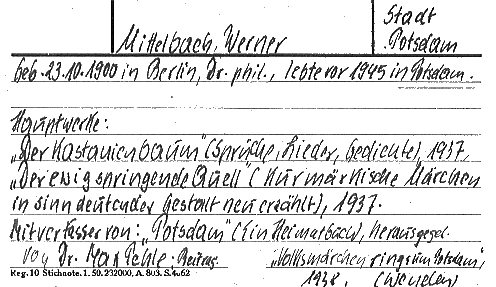 Mittelbach, Werner
Stadt
Potsdam
geb. 23.10.1900 in Berlin, Dr. phil., lebte vor 1945 in Potsdam.
Hauptwerke:
„Der Kastanienbaum" (Sprüche, Lieder, Gedichte), 1937.
„Der ewig springende Quell (Kurmärkische Märchen
in sinndeutender Gestalt neu erzählt), 1937.
Mitverfasser von: „Potsdam" (Ein Heimatbuch), herausgeg.
von Dr. Max Pehle; Beitrag:
„Volksmärchen rings um Potsdam",
Reg. 10 Stichnote. 1. 50. 232000, A. 803. S. 4. 62
1938.